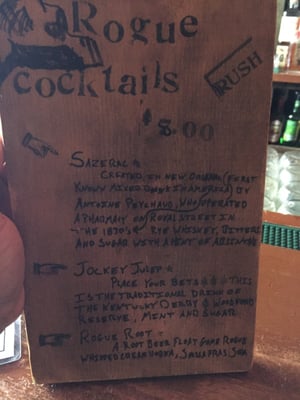 Rogue
cocktails
RUSH
$8.00
SAZERAC
CREATED IN NEW ORLEANS (FIRST
KNOWN MIXED DRINK IN AMERICA) BY
ANTOINE PEYCHAUD, WHO OPERATED
A PHARMACY ON ROYAL STREET IN
THE 1870'S RYE WHISKEY, BITTERS
AND SUGAR WITH A HINT OF ABSINTHE
JOCKEY JULEP
PLACE YOUR BETS THIS
IS THE TRADITIONAL DRINK OF
THE KENTUCKY DERBY WOODFORD
RESERVE, MINT AND SUGAR
ROGUE ROOT
A ROOT BEER FLOAT GONE ROGUE
WHIPPED CREAM VODKA, SASSAFRAS, SODA